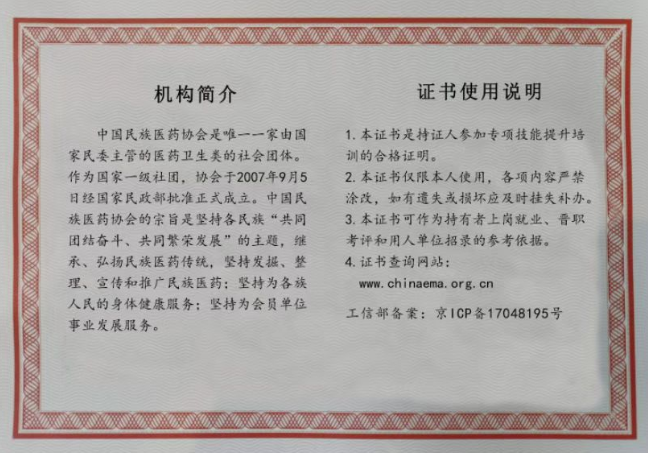 机构简介
中国民族医药协会是唯一一家由国
家民委主管的医药卫生类的社会团体。
作为国家一级社团，协会于2007年9月5
日经国家民政部批准正式成立。中国民
族医药协会的宗旨是坚持各民族“共同
团结奋斗、共同繁荣发展”的主题，继
承、弘扬民族医药传统，坚持发掘、整
理、宣传和推广民族医药；坚持为各族
人民的身体健康服务；坚持为会员单位
事业发展服务。
证书使用说明
1.本证书是持证人参加专项技能提升培
训的合格证明。
2.本证书仅限本人使用，各项内容严禁
涂改，如有遗失或损坏应及时挂失补办。
3.本证书可作为持有者上岗就业、晋职
考评和用人单位招录的参考依据。
4.证书查询网站：
www.chinaema.org.cn
工信部备案：京ICP备17048195号